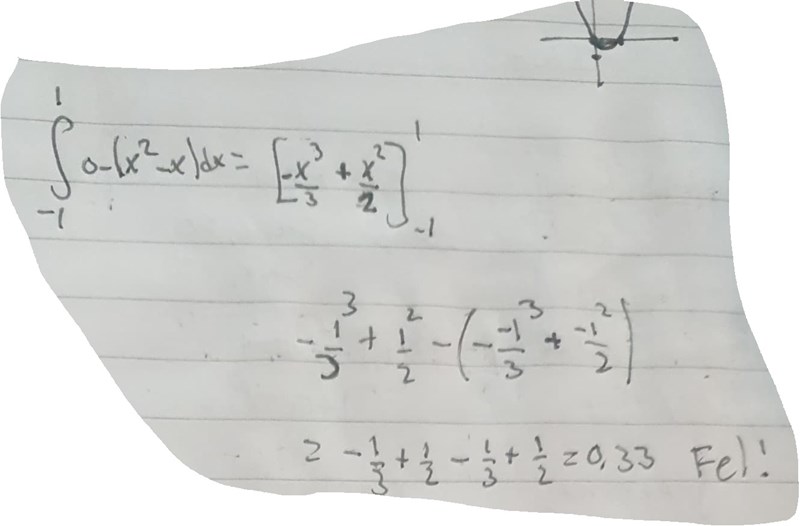 ∫₋₁¹ 0-(x²-x)dx = [-x³/3 + x²/2]₋₁¹
-1³/3 + 1²/2 - (- -1³/3 + -1²/2)
= -1/3 + 1/2 - 1/3 + 1/2 = 0,33 Fel!